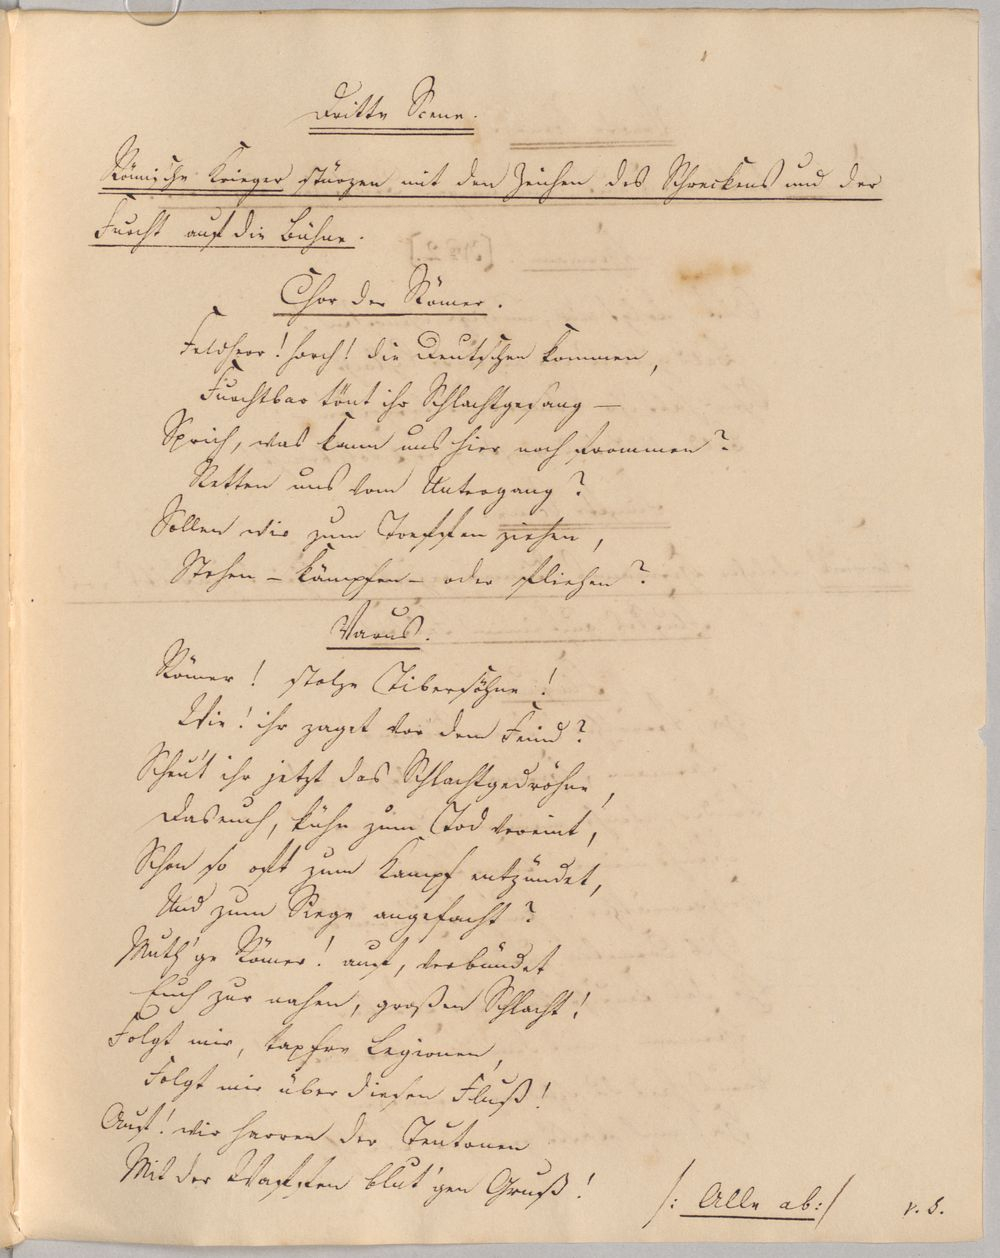 Dritte Scene.
Römische Krieger stürzen mit den Zeichen des Schreckens und der
Furcht auf die Bühne.
Chor der Römer.
Feldherr! horch! die Deutschen kommen,
Furchtbar tönt ihr Schlachtgesang —
Sprich, was kann uns hier noch frommen?
Retten uns vom Untergang?
Sollen wir zum Treffen ziehen,
Stehen – kämpfen – oder fliehen?
Varus.
Römer! stolze Tibersöhne!
Wie! ihr zaget vor dem Feind?
Scheu't ihr jetzt das Schlachtgedröhne,
Das euch, kühn zum Tod vereint,
Schon so oft zum Kampf entzündet,
Und zum Siege angefacht?
Muth'ge Römer! auf, verbündet
Euch zur nahen, großen Schlacht!
Folgt mir, tapfre Legionen,
Folgt mir über diesen Fluß!
Auf! wir harren der Teutonen
Mit der Waffen blut'gen Gruß!
/: Alle ab :/
v. S.